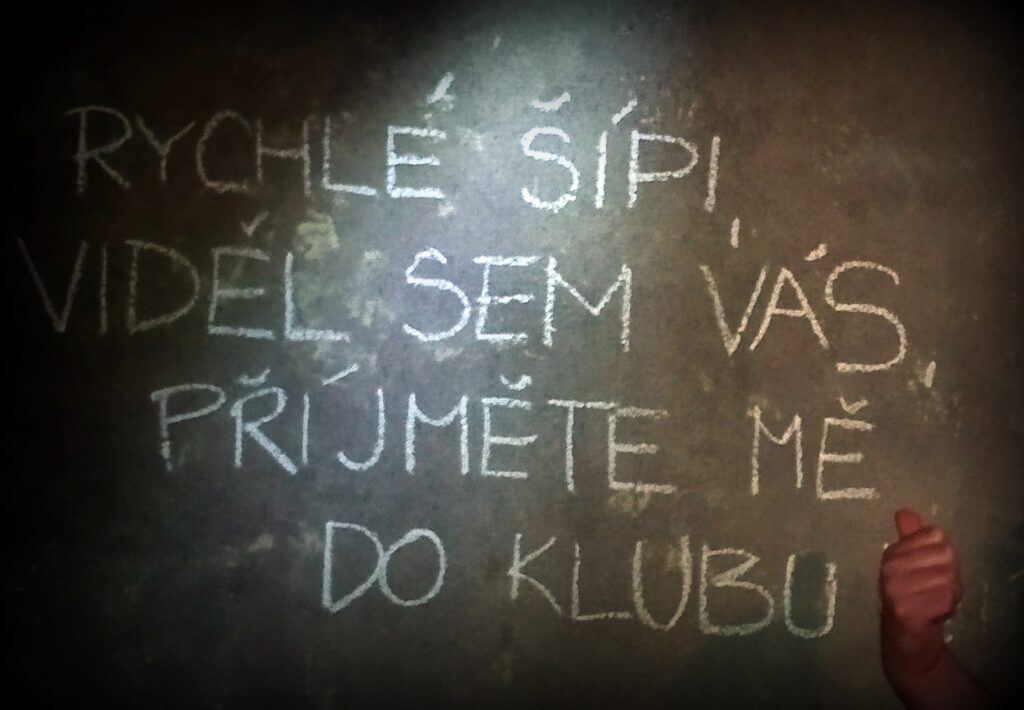 RYCHLÉ ŠÍPI,
VIDĚL SEM VÁS,
PŘÍJMĚTE MĚ
DO KLUBU